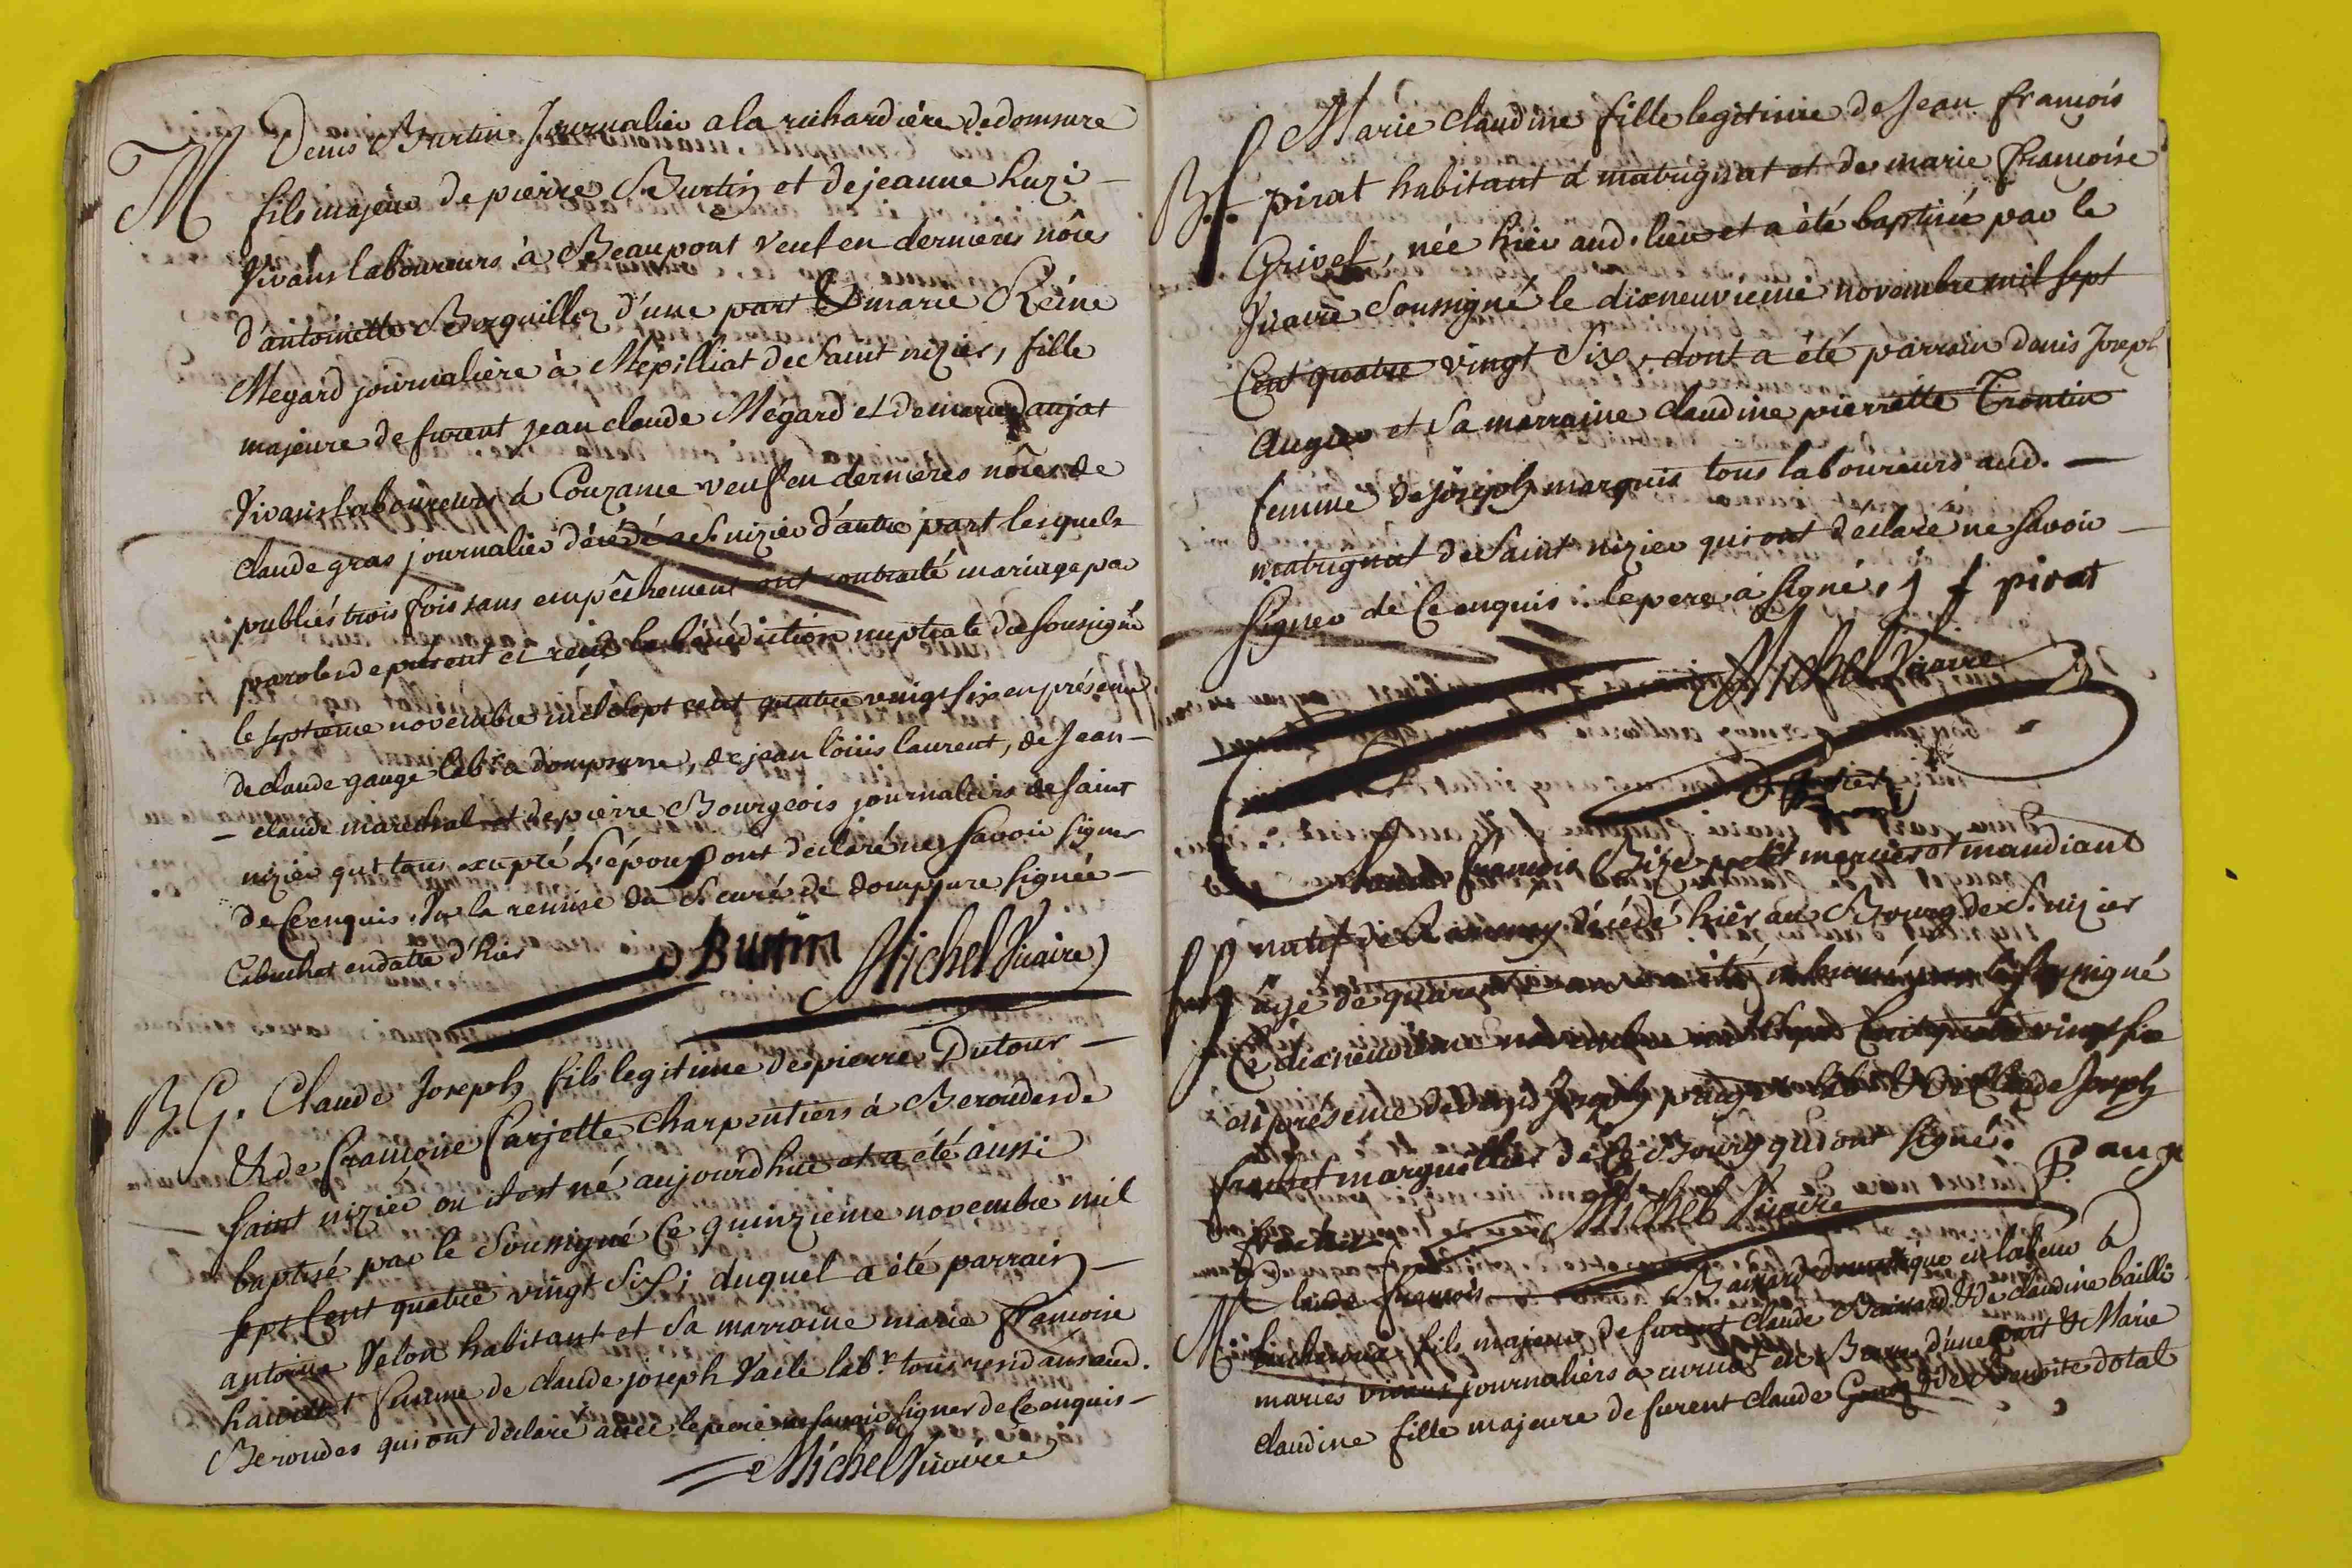 M Denis Burtin Journalier a la richardière de domsure
fils majeur de pierre Burtin et de jeanne huzi -
Vivans laboureurs à Beaupont veuf en dernieres nôces
d'antoinette Borguillez d'une part & marie Reine
Megard journalière à Mépilliat de Saint nizier, fille
majeure de furent jean claude Mégard et de marie Daujat
Vivans laboureurs à Couzance veuf en dernieres nôces de
claude gras journalier décédé a S. nizier d'autre part lesquels
publiés trois fois sans empêchement ont contracté mariage par
paroles de present et reçu la bénédiction nuptiale du soussigné
le septieme novembre mil sept cent quatre vingt six en présence
de claude gauge lab.r a dompsure, de jean loüis laurent, de Jean -
- claude marechal et de pierre Bourgeois journaliers de saint
nizier qui tous excepté L'époux ont déclaré ne savoir signer
de Ce enquis. Vu la remise du S. curé de dompsure signée -
Cabuchet en datte d'hier D Burtin Michel Vicaire
B G. Claude Joseph fils legitime de pierre Dutour -
& de francoise farjette charpentiers à Beroudes de
saint nizier ou il est né aujourdhui et a été aussi
baptisé par le Soussigné Ce quinzieme novembre mil
sept Cent quatre vingt Six; duquel a été parrain -
antoine Velon habitant et Sa marraine marie francoise
femme de claude joseph Vacle lab.r tous resid ans aud.
Beroudes qui ont déclaré avec le pere ne savoir signer de Ce enquis -
Michel Vicaire
Marie claudine fille legitime de Jean françois
B.f. pirat habitant à matrignat et de marie françoise
Grivel, née hier aud. lieu et a été baptisée par le
Vicaire Soussigné le dixneuvieme novembre mil sept
Cent quatre vingt Six, dont a été parrain denis Joseph
Augier et Sa marraine claudine pierrette Trontin
femme de joseph marquis tous laboureurs aud. -
matrignat de Saint nizier qui ont déclaré ne savoir -
signer de Ce enquis : le pere a signé, j f pirat
Michel Vicaire
françois Bize petit mercier et mandiant
natif de décédé hier au Bourg de S. nizier
âgé de quarante ans a été inhumé par le soussigné
Ce dixneuvieme novembre mil sept Cent quatre vingt six
en présence de denis Joseph pauget lab.r & de Claude Joseph
marguillier de Ce Bourg qui ont signé. P auge
Michel Vicaire
M. Claude françois Bavard domestique en labeur à
fils majeur de furent claude Bavard & de claudine bailli
mariés vivans journaliers a curciat en Bresse d'une part & Marie
claudine fille majeure de furent claude & de Benoite dotal